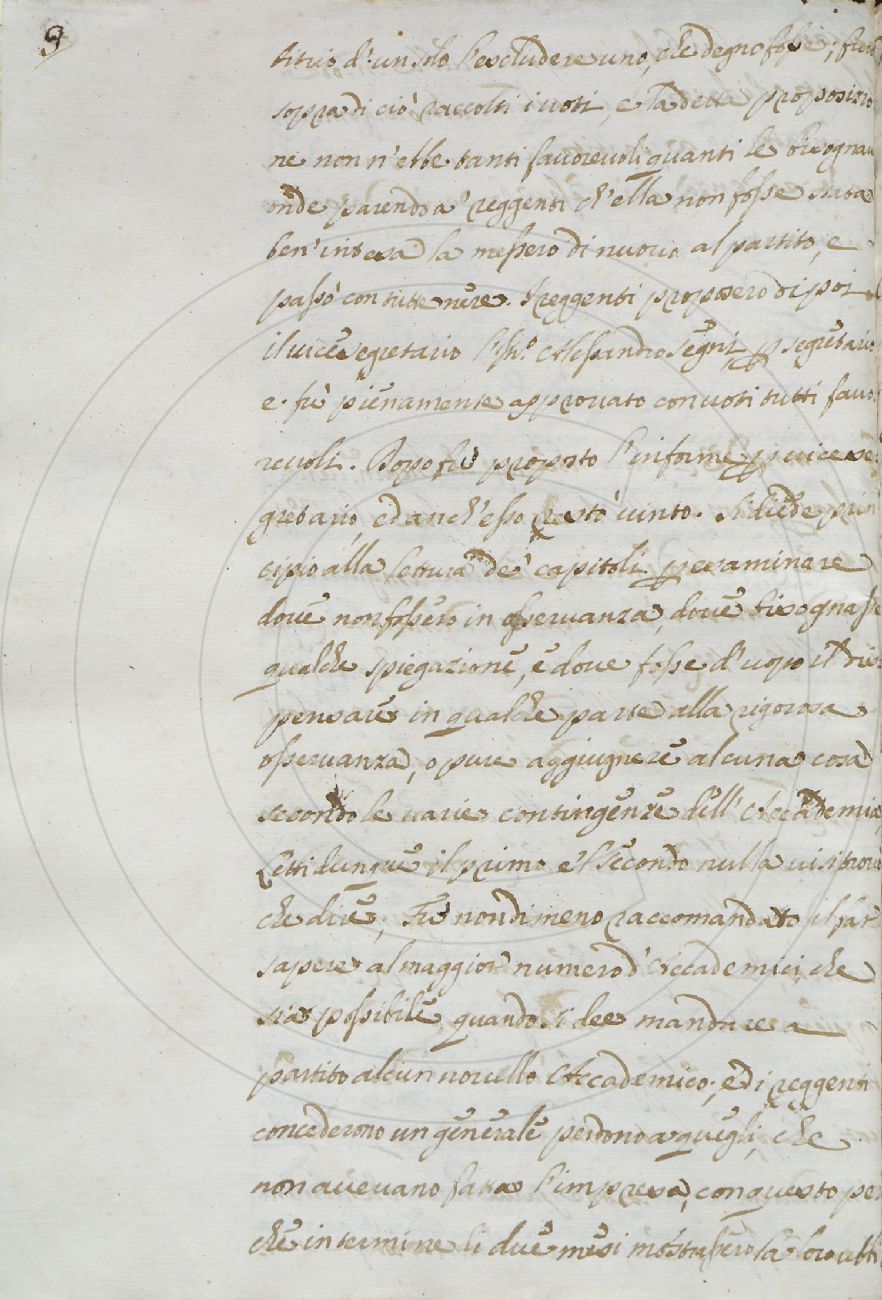 9
tituio d'un solo l'escludere uno, che degno fosse; furo
sopra di ciò raccolti i voti, e la detta proposizio
ne non n'ebbe tanti favorevoli quanti le bisognau
onde parendo a' reggenti ch'ella non fosse stata
ben'intesa la messero di nuovo al partito, e
passò con tutte nere. I reggenti proposero di poi
il vicesegretario l'Ill.º Alessandro Segni p segretario
e fù pienamente approvato con voti tutti favo
revoli. Dopo fù proposto l'informe p vicese
gretario, ed anch'esso restò vinto. Si diede prin
cipio alla lettura de' capitoli p esaminare
dove non fossero in osservanza, dove bisognasse
qualche spiegazione, e dove fosse d'uopo il dis
pensare in qualche parte alla rigorosa
osservanza, o pure aggiugnere alcuna cosa
secondo le varie contingenze dell'Accademia
Letti dunque il primo e'l secondo nulla vi si trovò
che dire; Fù nondimeno raccomandato il far
sapere al maggior numero d'Accademici, che
sia possibile, quando si dee mandare a
partito alcun novello Accademico; ed i reggenti
concederono un generale perdono a quegli, che
non avevano fatta l'impresa, con questo per
che in termine di due mesi mostrassero la loro